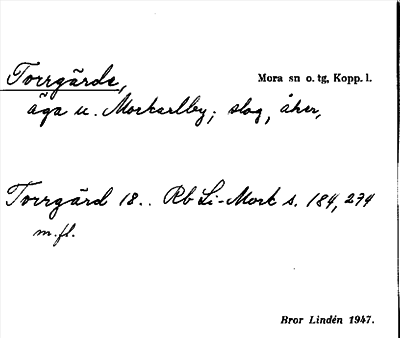 Torrgärde, Mora sn o. tg, Kopp. l.
äga u. Morkarlby; slog, åker,
Torrgärd 18.. Rb Li-Mork s. 184, 274
m.fl.
Bror Lindén 1947.